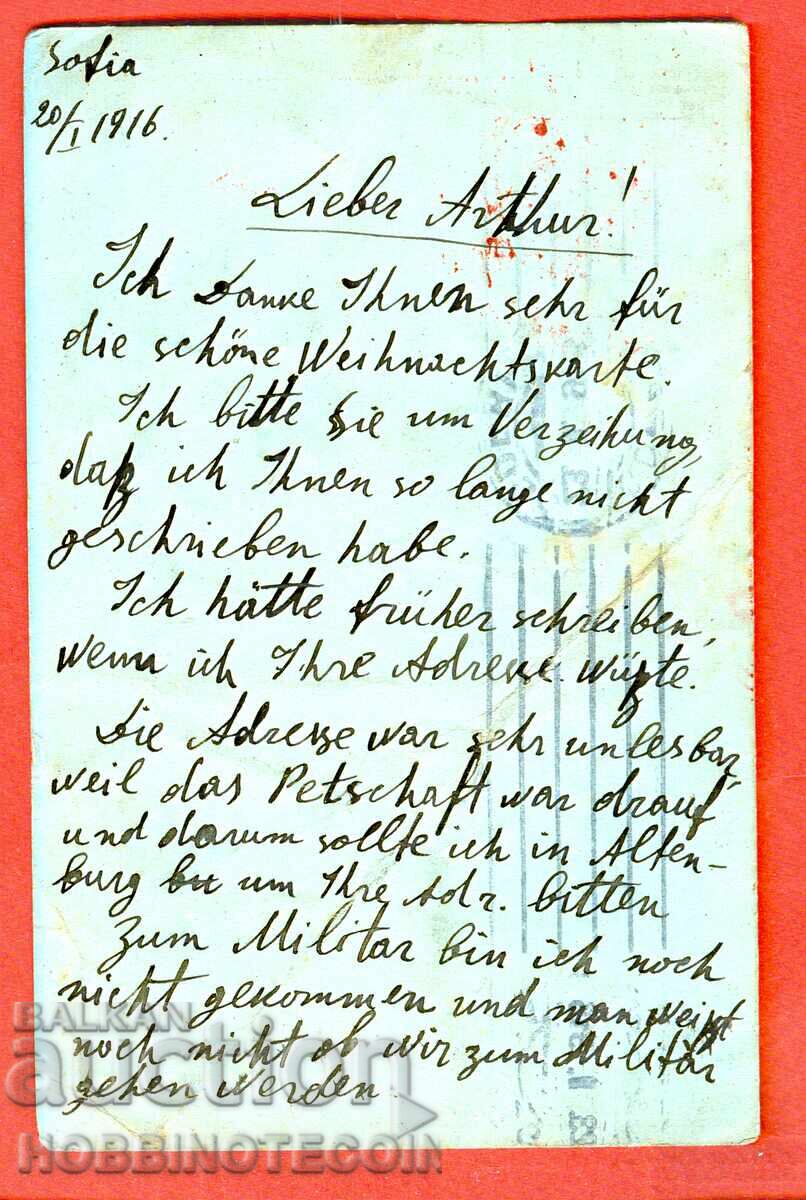 Sofia
20/I 1916.
Lieber Arthur!
Ich Danke Ihnen sehr für
die schöne Weihnachtskarte.
Ich bitte Sie um Verzeihung,
daß ich Ihnen so lange nicht
geschrieben habe.
Ich hätte früher schreiben,
wenn ich Ihre Adresse wüßte.
Die Adresse war sehr unlesbar,
weil das Petschaft war drauf
und darum sollte ich in Alten-
burg um Ihre Adr. bitten
Zum Militär bin ich noch
nicht gekommen und man weißt
noch nicht ob wir zum Militär
gehen werden.
BALKAN
auction
HOBBINOTECOIN